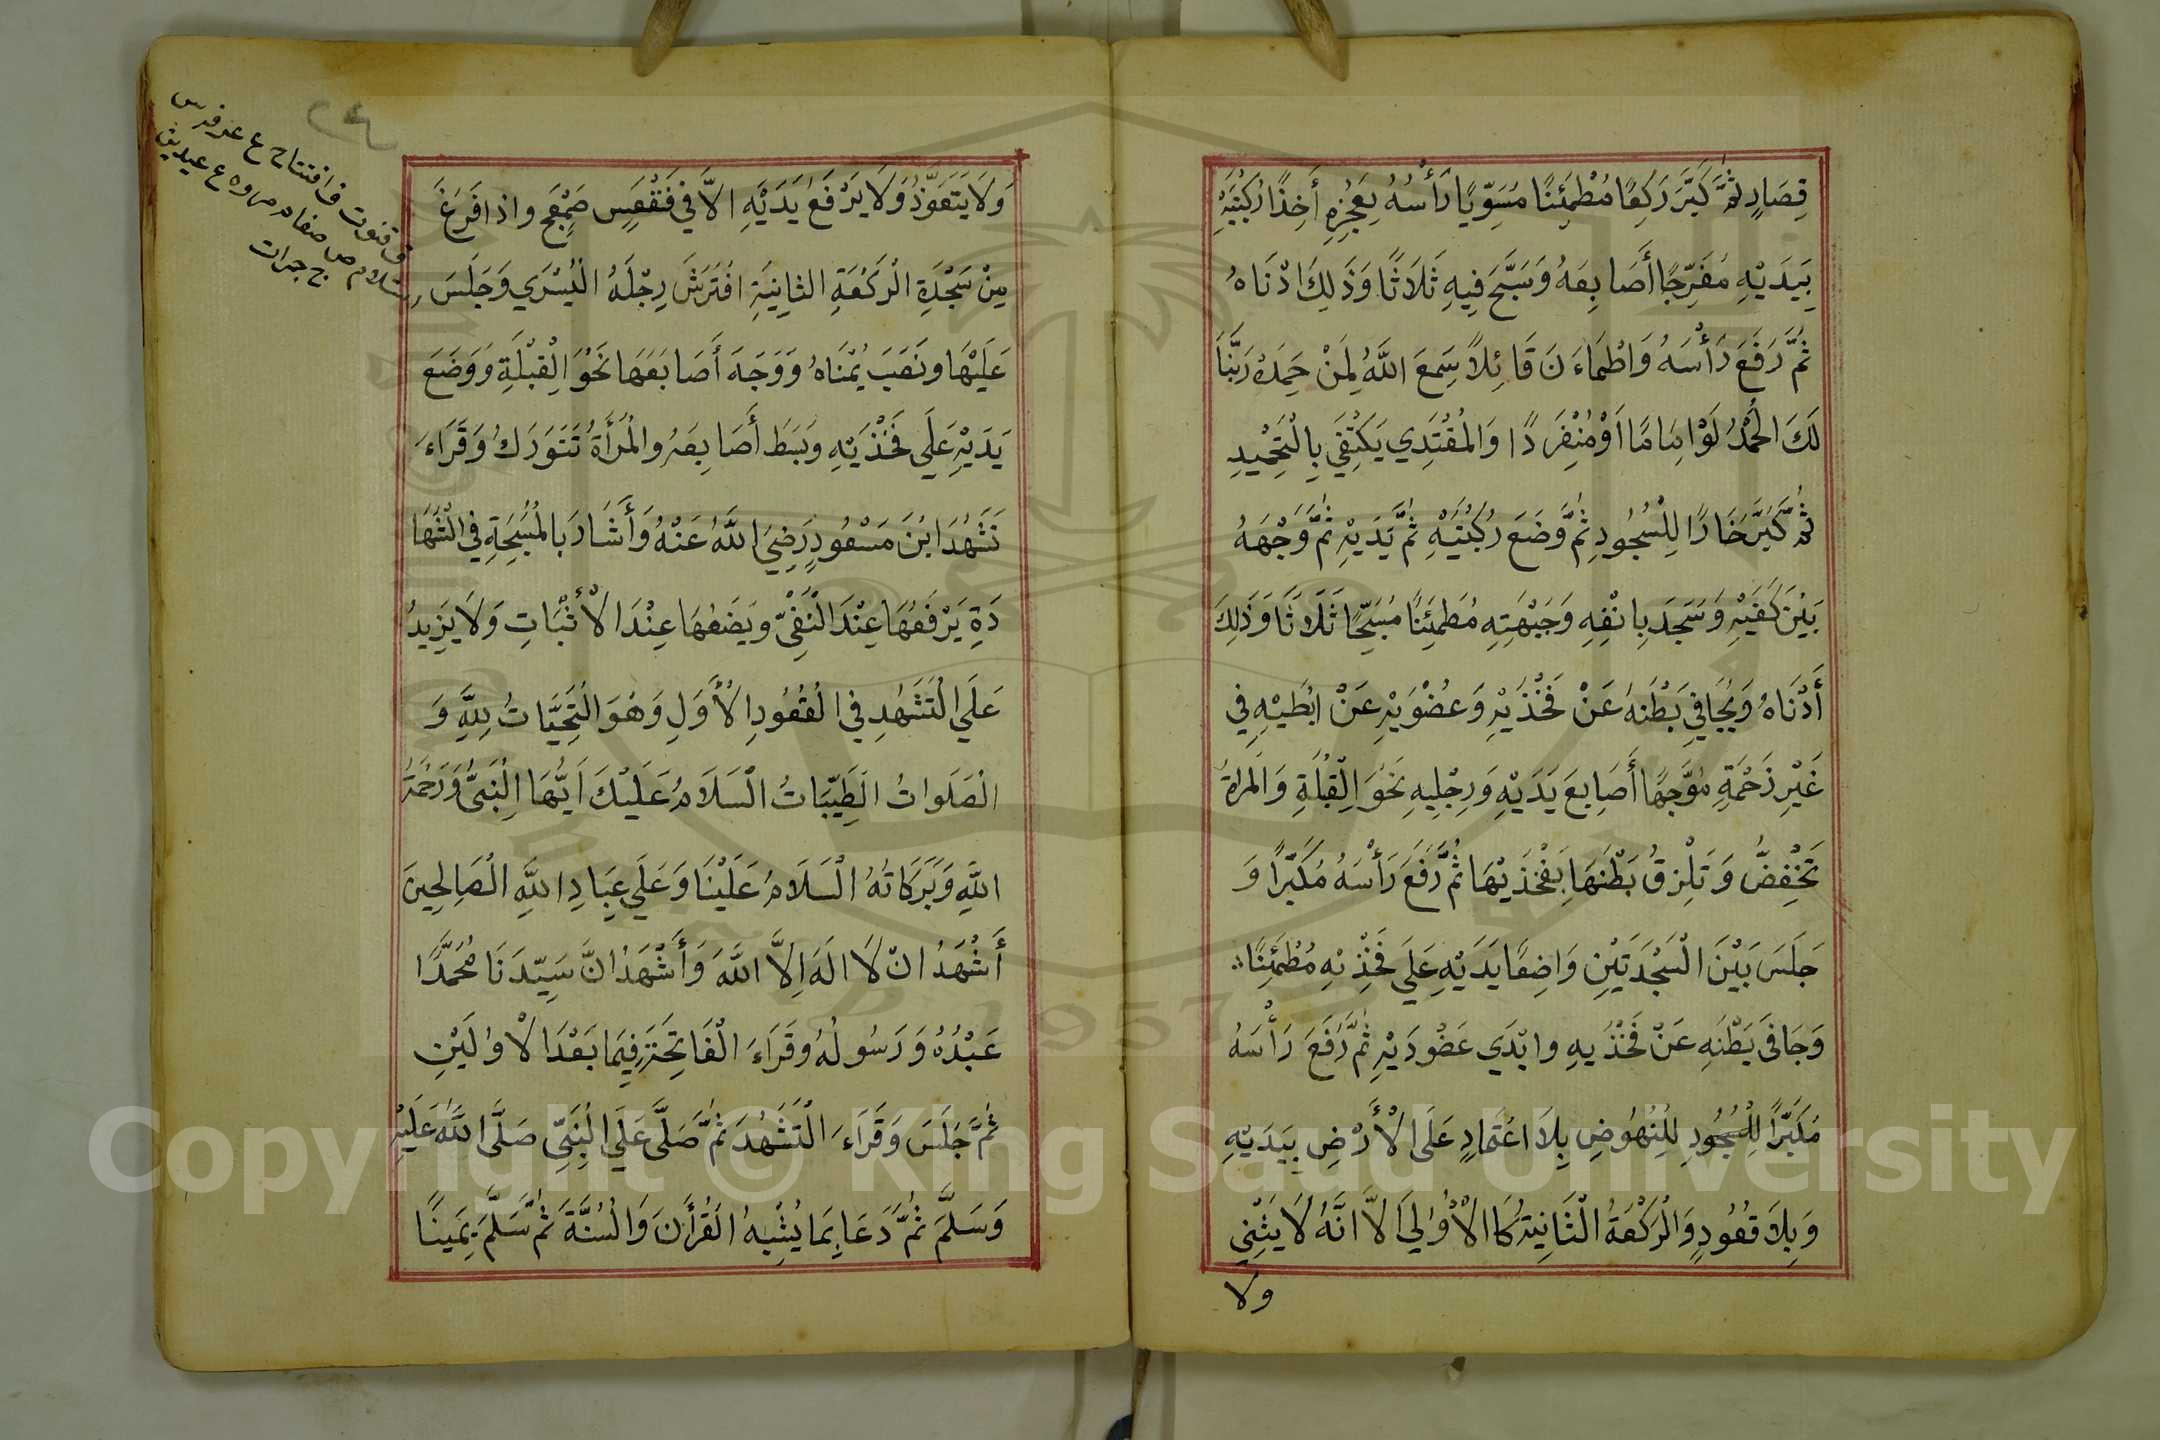 قِصَارٍ ثُمَّ كَبَّرَ رَكِعًا مُطْمَئِنًا مُسَوِّيًا رَأْسُهُ بِعَجُزِهِ أَخِذًا رُكْبَتَيْهِ
بِيَدَيْهِ مُفَرِّجًا أَصَابِعَهُ وَسَبَّحَ فِيهِ ثَلَاثًا وَذَلِكَ ادْنَاهُ
ثُمَّ رَفَعَ رَأْسَهُ وَاطْمَاءَنَ قَائِلاً سَمِعَ اللَّهُ لِمَنْ حَمِدَهُ رَبَّنَا
لَكَ الْحَمْدُ لَوْ اِمَامًا اَوْ مُنْفَرِدًا وَالْمُقْتَدِي يَكْتَفِي بِالْتَحْمِيْدِ
ثُمَّ كَبَّرَ خَارًا لِلْسُجُودِ ثُمَّ وَضَعَ رُكْبَتَيْهِ ثُمَّ يَدَيْهِ ثُمَّ وَجْهَهُ
بَيْنَ كَفَيْهِ وَسَجَدَ بِانْفِهِ وَجَبْهَتِهِ مُطَمَئِنًا مُسَبِّحًا ثَلَاثًا وَذَلِكَ
أَدْنَاهُ وَيُجَافِي بَطْنَهُ عَنْ فَخْذَيْهِ وَعُضْوَيْهِ عَنْ ابْطَيْهِ فِي
غَيْرِ زَحْمَةٍ مُوَّجِهًا أَصَابِعَ يَدَيْهِ وَرِجْلَيْهِ نَحْوَ الْقِبْلَةِ وَالمَرْاةُ
تَخْفِضُ وَتَلْزِقُ بَطْنَهَا بِفَخْذَيْهَا ثُمَّ رَفَعَ رَأْسَهُ مُكَبِّرًا وَ
جَلَسَ بَيْنَ الْسَجْدَتَيْنِ وَاضِعًا يَدَيْهِ عَلَي فَخْذَيْهِ مُطْمَئِنًا
وَجَافَى بَطْنَهِ عَنْ فَخْذَيهِ وابْدَي عَضُودَيْهِ ثُمَّ رَفَعَ رَأْسَهُ
مُكَبِّرًا لِلْسُجُودِ لِلْنُهُوضِ بِلَا اعْتَمادٍ عَلَى الْأَرْضِ بِيَدَيْهِ
وَبِلَا قُعُودٍ وَالْرَكْعَةُ الْثَانِيَةُ كَا الْأُوْلَي الاَّ انَّهُ لَا يَثْنِي
ولا
وَلَا يَتَعَوَّذُ وَلَا يَرْفَعُ يَدَيْهِ الاَّ فِي فَقْعَسٍ صَمْعَجٍ واذا فَرَغَ
مِنْ سَجْدَةِ الْرَكْعَةِ الثانِيَةِ افْتَرَشَ رِجْلَهُ الْيُسْرَي وَجَلَسَ
عَلَيْهَا ونَصَبَ يُمْنَاهُ وَوَجَهَ أَصَابَعَهَا نَحْوَ الْقِبْلَةِ وَوَضَعَ
يَدَيْهِ عَلَى فَخْذَيْهِ وبَسَطَ أَصَابِعَهُ والْمَرْأَةُ تَتَوَرَكُ وَقَرَاءَ
تَشَهُدَ ابْنَ مَسْعُودٍ رَضِيَ اللَّهُ عَنْهُ وَأَشَارَ بِالمُسَبِّحَةِ فِي الْشَهَا
دَةِ يَرْفَعُهَا عِنْدَ الْنَفْيِّ وَيَضَعُهَا عِنْدَ الْأَثْبَاتِ وَلَا يَزِيدُ
عَلَي الْتَشَهُدِ فِي الْقُعُودِ الْأَوَلِ وَهُوَ الْتَحِيَّاتُ لِلَّهِ وَ
الْصَلَواتُ الْطَيِّبَاتُ الْسَلَامُ عَلَيْكَ اَيُّهَا الْنَبَيُّ وَرَحْمَةُ
اللَّهِ وَبَرَكَاتُهُ الْسَلَامُ عَلَيْنَا وَعَلَي عِبَادِ اللَّهِ الْصَالِحِينَ
أَشْهَدُ انْ لَا الَهَ اِلاَّ اللَّهَ وَأَشْهَدُ انَّ سَيِّدَنَا مُحَمَّدًا
عَبْدُهُ وَرَسُولُهُ وقَرَاءَ الْفَاتِحَةَ فِيمَا بَعْدَ الْاوُلَيَيْنِ
ثُمَّ جَلَسَ وَقَرَاءَ الْتَشَهُدَ ثُمَّ صَلَّى عَلَي الْنَبِيِّ صَلَّى اللَّهُ عَلَيْهِ
وَسَلَّمَ ثُمَّ دَعَا بِمَا يُشْبِهُ الْقُرْأَنَ وَالْسُنَّةَ ثُمَّ سَلَّمَ يَمِينًا
ف افتتاح ع
قنوت
ص صفا م مروه ع
ج جمرات
٢٤
Copyright © King Saud University
1957